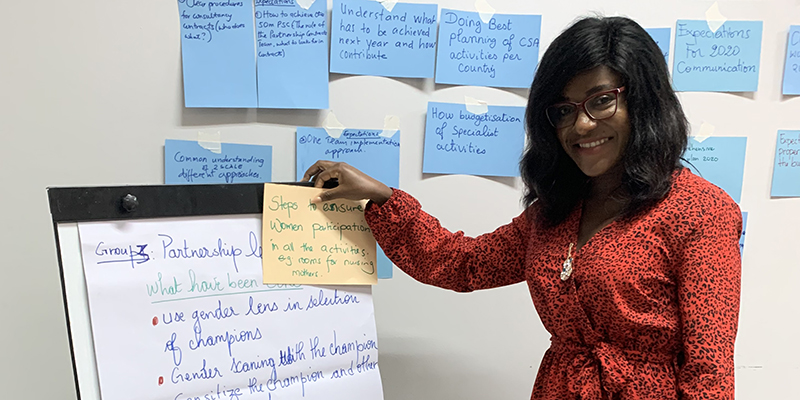 Clear procedures
for consultancy
contracts (who does
what?)
Expectations
① How to achieve the
50m PSC (The role of
the Partnership Contracts
what to be in
contracts)
Understand what
has to be achieved
next year and how
contribute
Doing Best
planning of CSA
activities per
Country
Expectations
For 2020
Communication
Common understanding
of 2SCALE
different approaches
Expectations
One team implementation
approach
How budgetisation
of Specialist
activities
2020
Steps to ensure
Women participation
in all the activities.
e.g rooms for nursing
mothers.
Group 3: Partnership
What have been
• Use gender lens in selection
of champions
• Gender with the champion
the champion and other